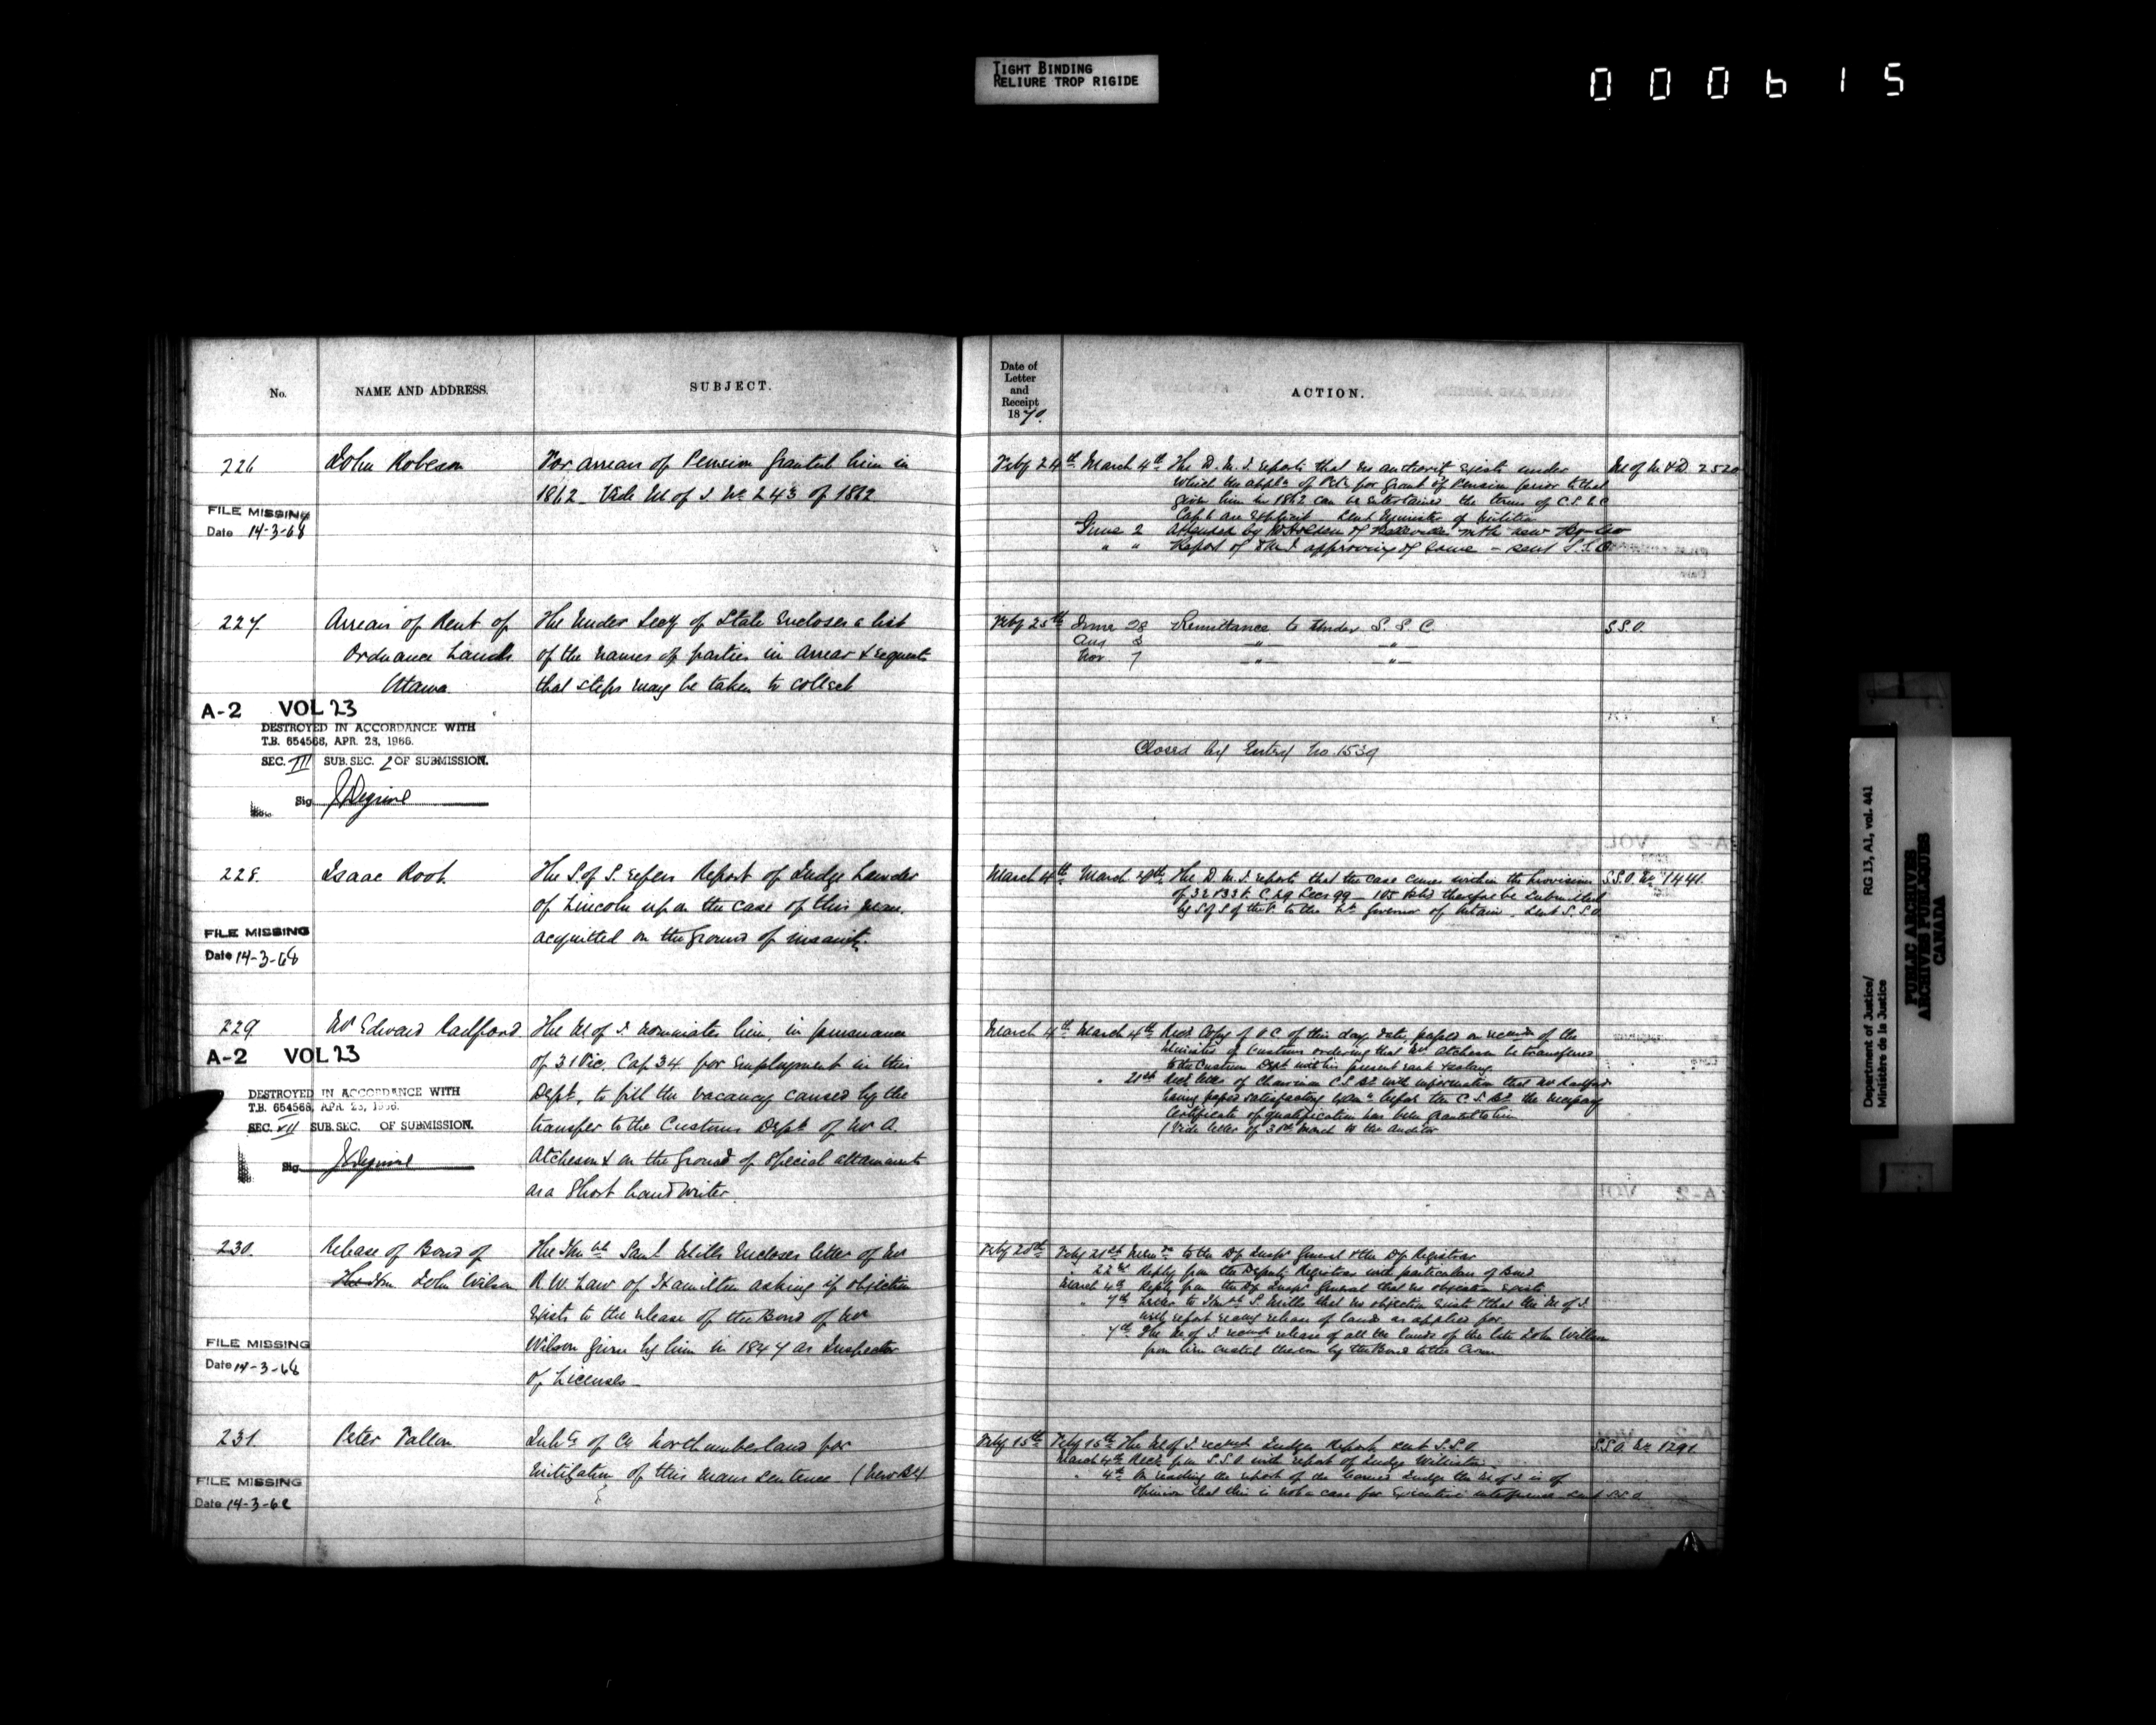 TIGHT BINDING
RELIURE TROP RIGIDE
000615
No.
NAME AND ADDRESS.
SUBJECT.
226
John Robeson
For arrears of Pension granted him in
1862 Vide M of J No 243 of 1862
FILE MISSING
Date 14-3-68
227
Arrears of Rent of
Ordnance Lands
Ottawa
The Under Secy of State encloses a list
of the names of parties in arrear & requests
that steps may be taken to collect
A-2 VOL 23
DESTROYED IN ACCORDANCE WITH
T.B. 654568, APR. 28, 1966.
SEC. III SUB. SEC. 2 OF SUBMISSION.
Sig
228.
Isaac Root.
The S. of S. refers Report of Judge Lawder
of Lincoln upon the case of this man.
acquitted on the ground of insanity.
FILE MISSING
Date 14-3-68
229
Mr Edward Radford.
The M of J. nominates him, in pursuance
of 31 Vic. Cap 34 for employment in this
Dept, to fill the vacancy caused by the
transfer to the Customs Dept of Mr A.
Atcheson & on the ground of special attainments
as a Short hand writer.
A-2 VOL 23
DESTROYED IN ACCORDANCE WITH
T.B. 654568, APR. 28, 1966.
SEC. VII SUB. SEC. OF SUBMISSION.
Sig
230.
Release of Bond of
The Hon John Wilson
The Hon ble Saml Mills encloses letter of Mr
R. W. Law of Hamilton asking if objection
exists to the release of the Bond of Mr
Wilson given by him in 1847 as Inspector
of Licenses
FILE MISSING
Date 14-3-68
231.
Peter Fallon
of Co Northumberland for
mitigation of this mans sentence
FILE MISSING
Date 14-3-68
Date of
Letter
and
Receipt
1870.
ACTION.
Feby 24th
March 4th The D. M. J. reports that no authority exists under
which the appln of for grant of Pension prior to that
given him in 1862 can be entertained the terms of C.S.L.C
Cap 1 are explicit Sent Minister of Militia
June 2 Attended by of Belleville with new
" " Report of D M J. approving of same - sent S. S. C
M of M & D 2520
Feby 25th
June 28 Remittance to Under S. S. C.
Aug 3 " "
Nov. 7 " "
S.S.O.
Closed by Entry No. 1539
March 4th
March 29th The D. M. J. reports that the case comes within the provisions
of 32 & 33 V. C 29 Secs 99 - 105 & shd therefore be submitted
by S of S of the P. to the Lt Governor of Ontario. Sent S. S. O.
S.S.O. No 1441.
March 4th
March 4th Recd Copy of O C of this day's date, passed on recomdn of the
Minister of Customs ordering that Mr Atcheson be transferred
to the Customs Dept with his present rank & salary
" 21st Recd letter of Chairman C.S. Bd with information that Mr Radford
having passed satisfactory Examn before the C. S. Bd the necessary
Certificate of qualification has been granted to him
(Vide letter of 30th March to the Auditor
Feby 20th
Feby 21st to the Dy Inspr General & the Dy Registrar
" 22nd Reply from the Deputy Registrar with particulars of Bond
March 4th Reply from the Dy Inspr General that no objection exists
" 7th Letter to Honble S. Mills that no objection exists & that the M of J.
will report recomg release of lands as applied for.
" 7th The M. of J. recomds release of all the lands of the late John Wilson
from lien created thereon by the Bond to the Crown
Feby 15th
Feby 15th The M of J. recomds Judges Report, sent S.S.O.
March 4th Recd from S.S.O with report of Judge
" 4th On reading the report of the learned Judge the M of J is of
opinion that this is not a case for Executive interference sent S.S.O
S.S.O. No 1291.
Department of Justice/
Ministère de la Justice
RG 13, A1, vol. 441
PUBLIC ARCHIVES
ARCHIVES PUBLIQUES
CANADA